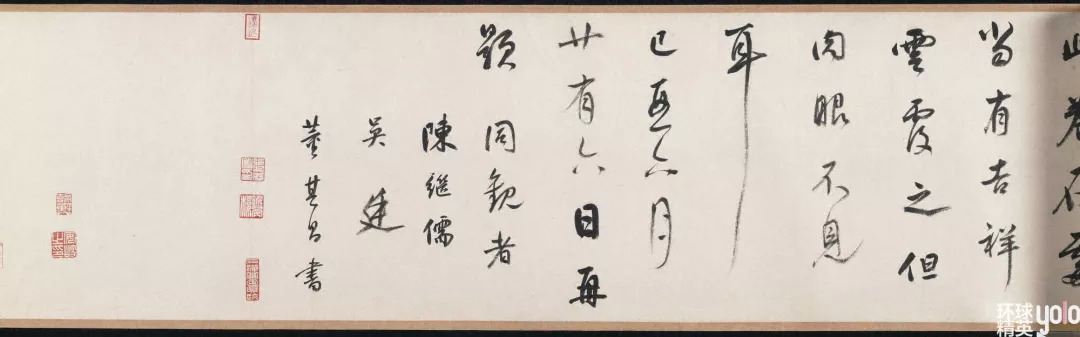 此卷在處
當有吉祥
雲覆之但
肉眼不見
耳
己酉六月
廿有六日再
題 同觀者
陳繼儒
吳廷
董其昌書
环球
精英
yolo